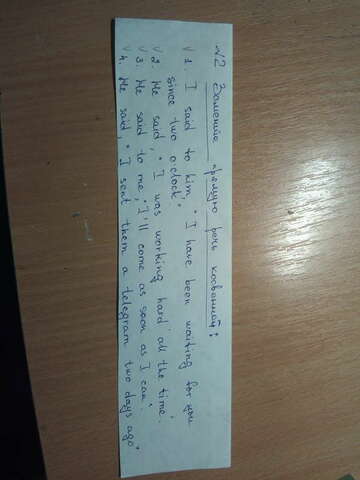 √2 Заменить прямую речь косвенной:
√ 1. I said to him, "I have been waiting for you
since two o'clock".
√ 2. He said, "I was working hard all the time".
√ 3. He said to me, "I'll come as soon as I can".
√ 4. He said, "I sent them a telegram two days ago"